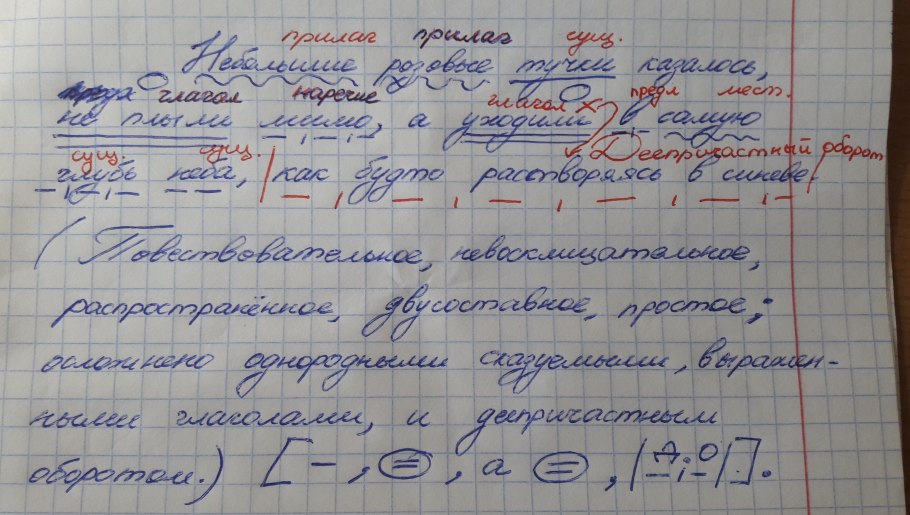 прилаг прилаг сущ.
Небольшие розовые тучки казалось,
глагол наречие глагол предл мест.
не плыли мимо, а уходили в самую
сущ. сущ. Деепричастный оборот
глубь неба, как будто растворяясь в синеве.
(Повествовательное, невосклицательное,
распространённое, двусоставное, простое;
осложнено однородными сказуемыми, выражен-
ными глаголами, и деепричастным
оборотом.) [— , = , а = , |Д.О|].